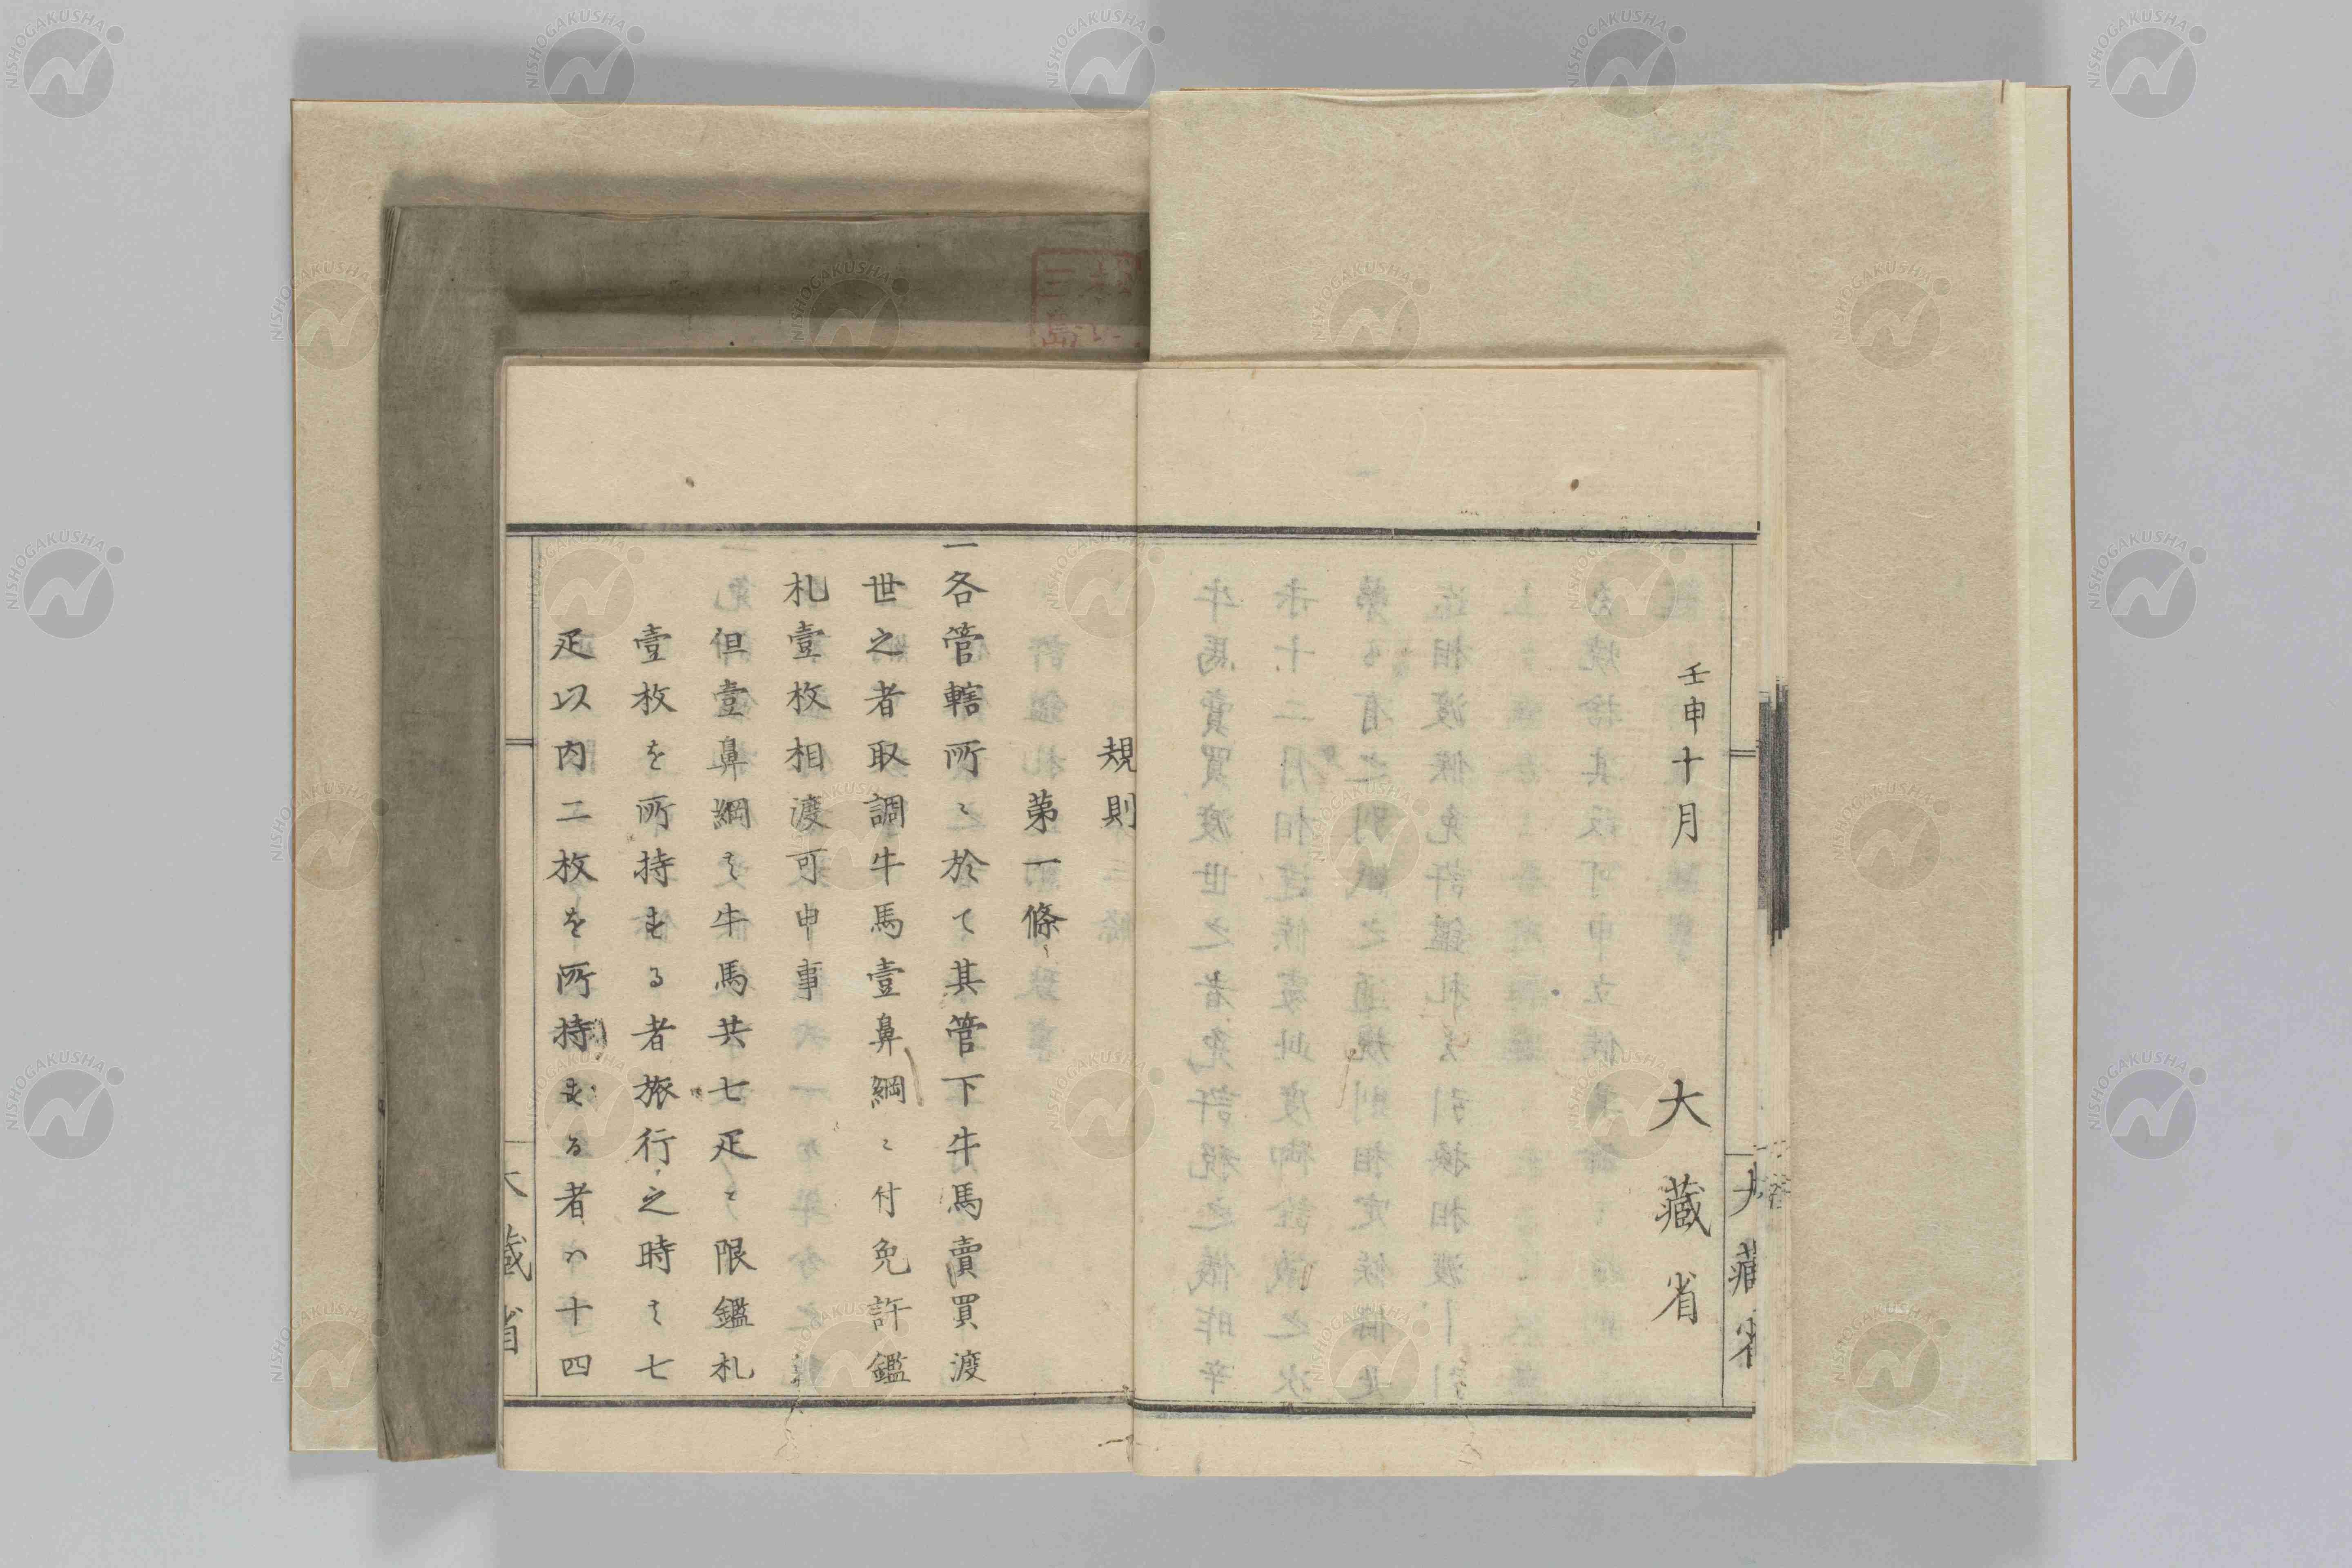 壬申十月
大藏省
大藏省
規則
第一條
一各管轄所ニ於て其管下牛馬賣買渡
世之者取調牛馬壹鼻綱ニ付免許鑑
札壹枚相渡可申事
但壹鼻綱とハ牛馬共七疋を限鑑札
壹枚を所持する者旅行之時ハ七
疋以内二枚を所持する者ハ十四
大藏省